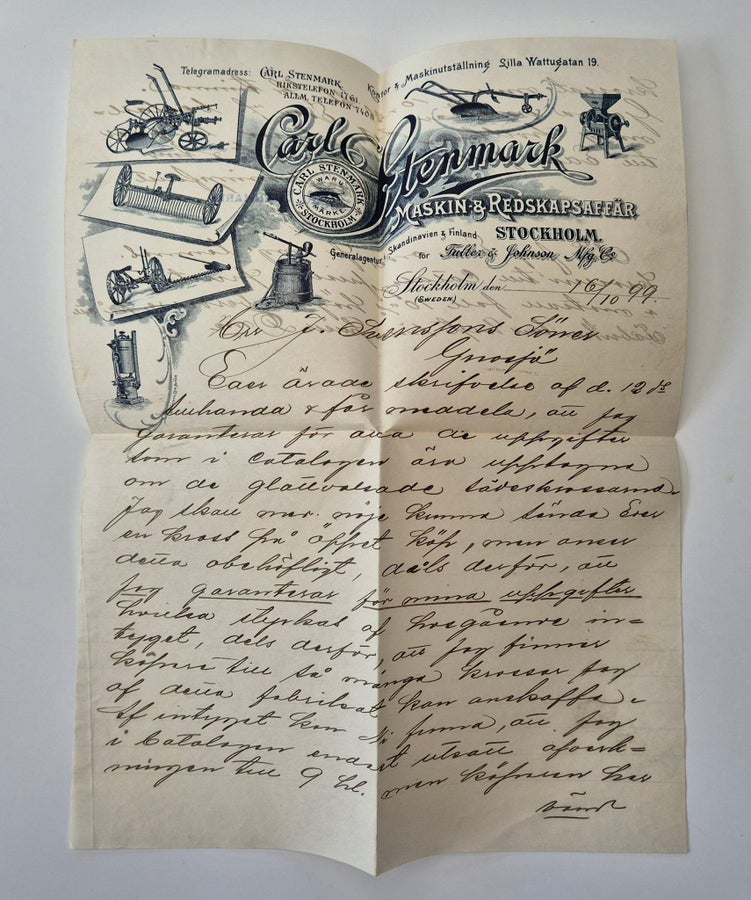 Telegramadress: CARL STENMARK.
RIKSTELEFON 1761.
ALLM. TELEFON 7408
Kontor & Maskinutställning Lilla Wattugatan 19.
Carl Stenmark
CARL STENMARK
WARU
MÄRKE
STOCKHOLM
MASKIN- & REDSKAPSAFFÄR
STOCKHOLM.
Generalagentur i Skandinavien & Finland
för Fuller & Johnson Mfg. Co
Stockholm den 16/10 99.
(SWEDEN)
Herr J. Svenssons Söner
Gnosjö
Eder ärade skrifvelse af d. 12 ds
tillhanda & får meddela, att jag
garanterar för alla de uppgifter
som i catalogen äro upptagna
om de glattvalsade sädeskrossarna.
Jag skall mer. nöje kunna sända Eder
en kross på öppet köp, men anser
detta obehöfligt, dels derför, att
jag garanterar för mina uppgifter
hvilka styrkas af hosgående in=
tyget, dels derför, att jag finner
köpare till så många krossar jag
af detta fabrikat kan anskaffa.
Af intyget kan Ni finna, att jag
i Catalogen endast utsatt afverk=
ningen till 9 hl. men köparen har
vänd